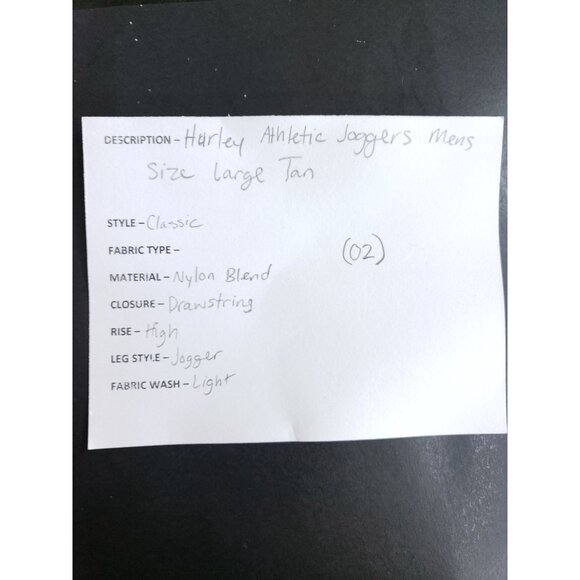 DESCRIPTION - Hurley Athletic Joggers Mens
Size Large Tan
STYLE - Classic
FABRIC TYPE -
(02)
MATERIAL - Nylon Blend
CLOSURE - Drawstring
RISE - High
LEG STYLE - Jogger
FABRIC WASH - Light